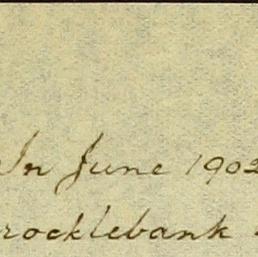 In June 1902
rocklebank